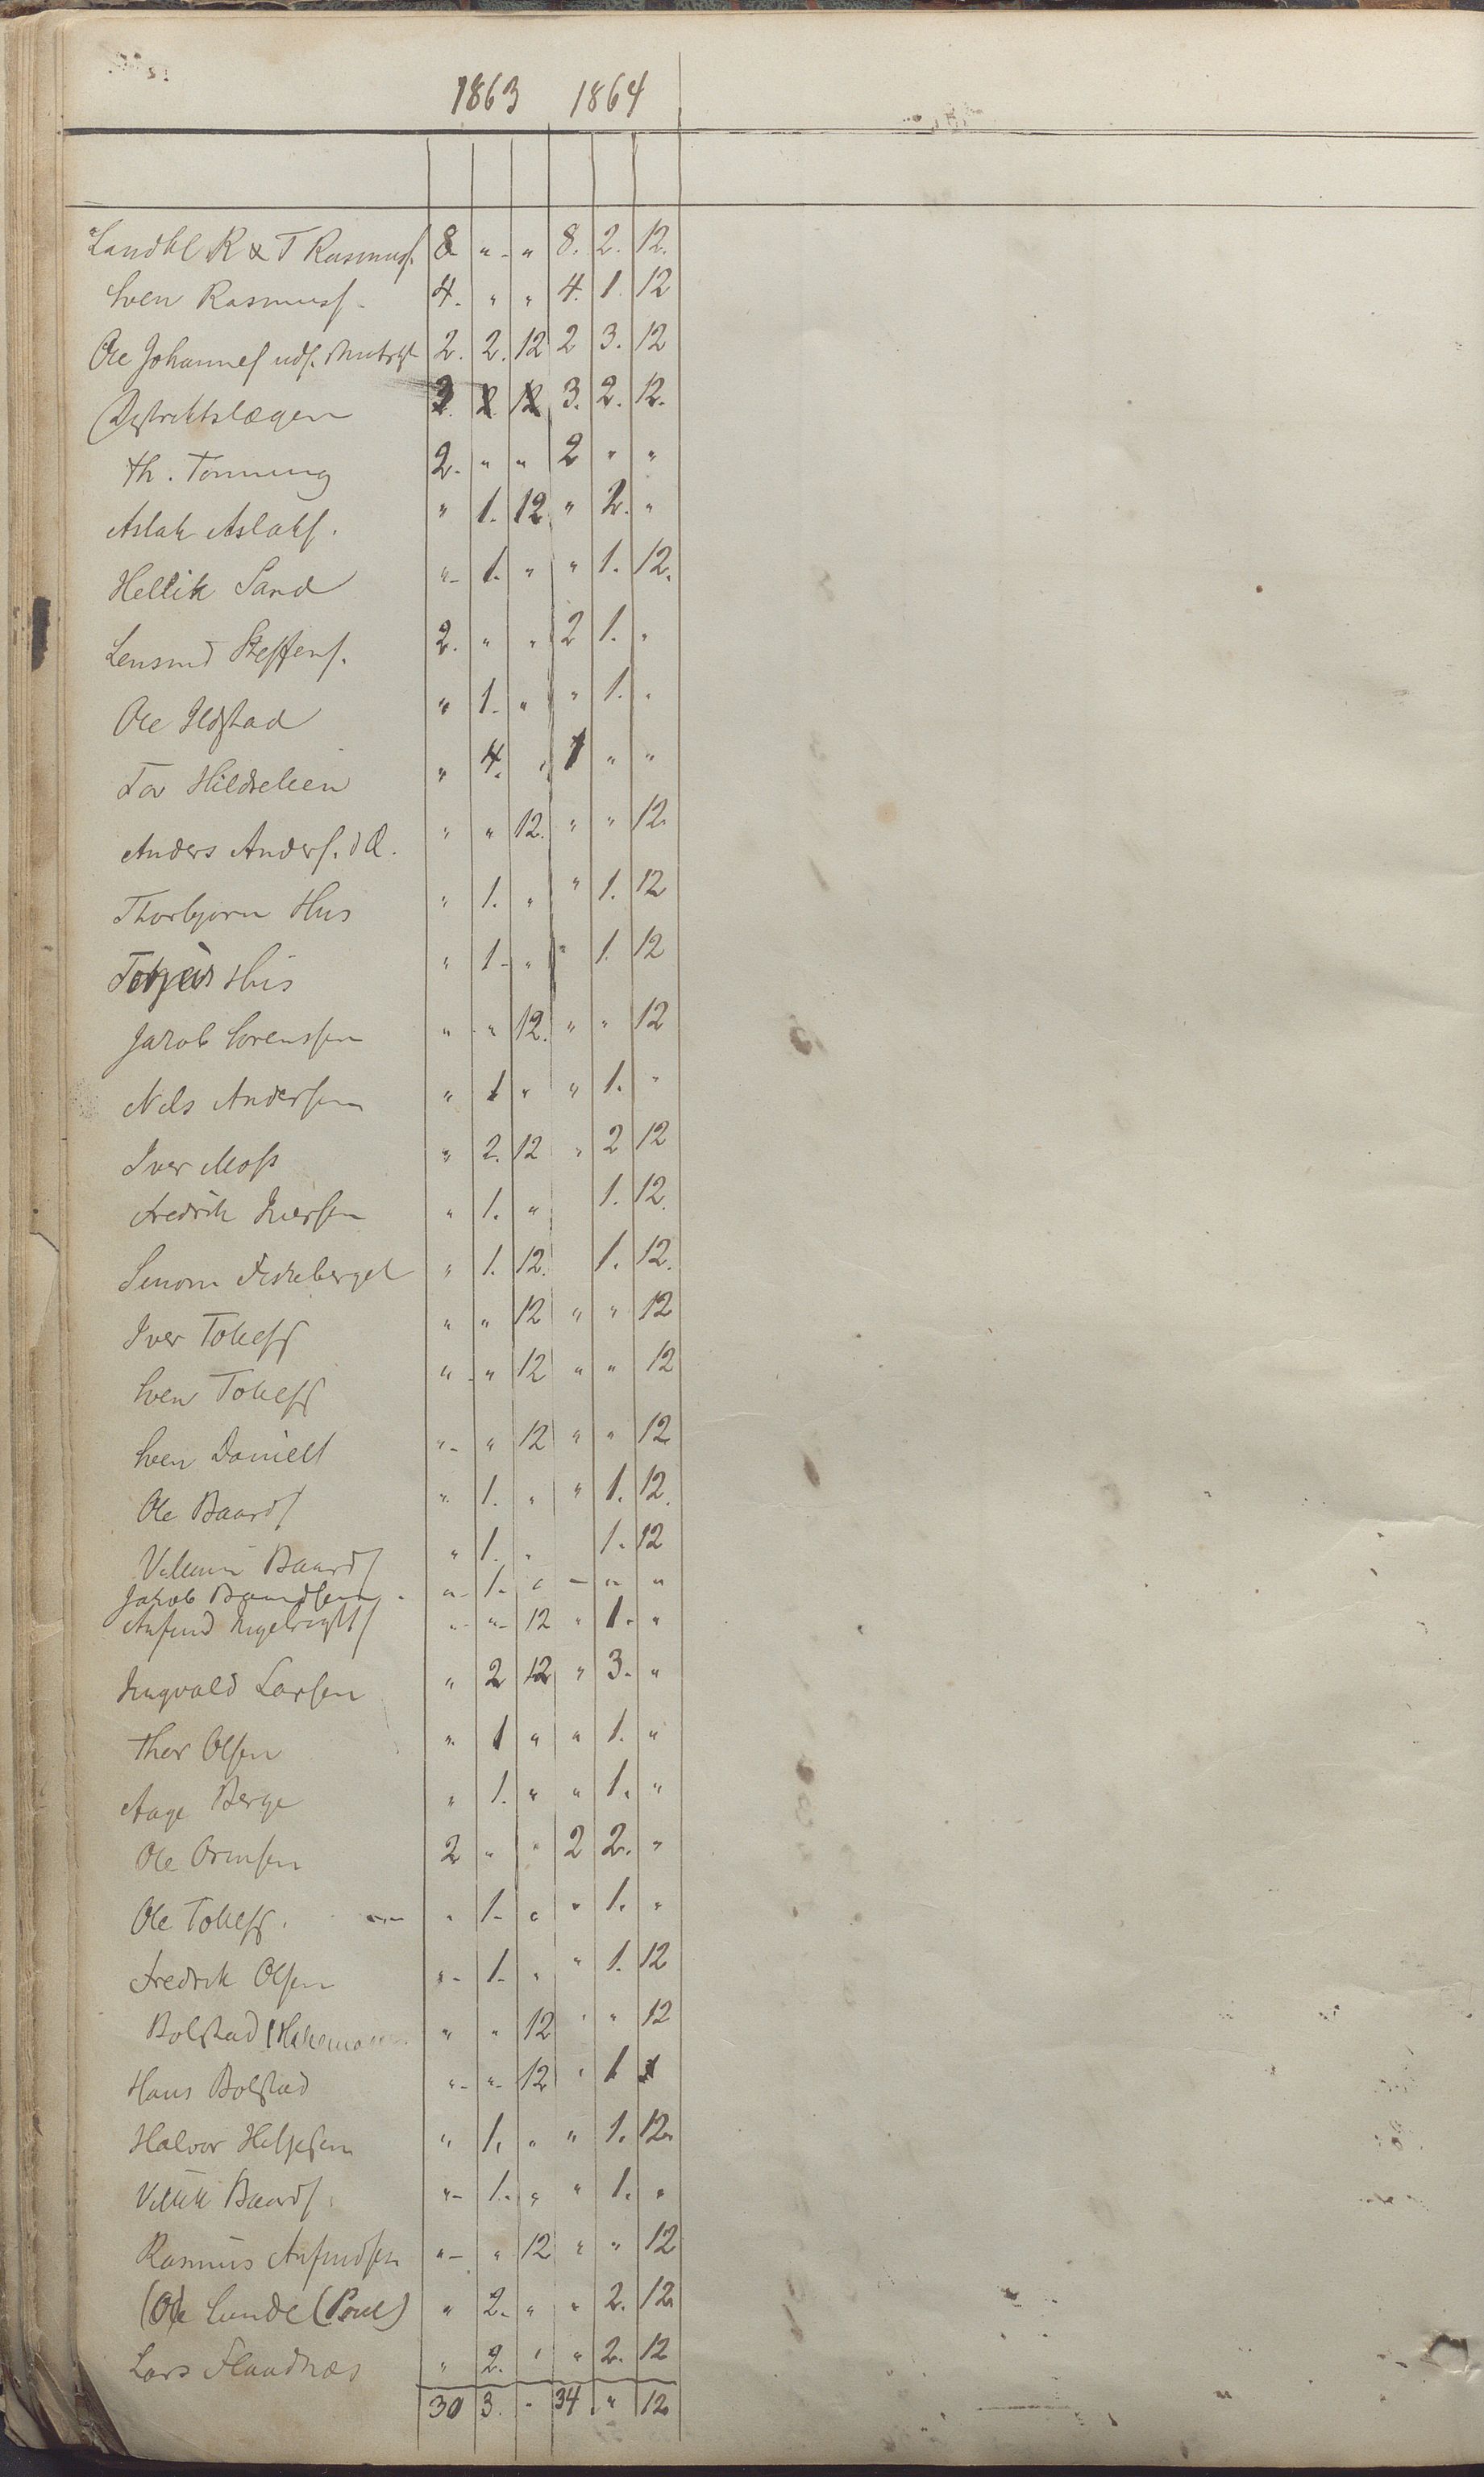 1863 1864
Landhl R & T Rasmuss. 8 " " 8. 2. 12.
Sven Rasmuss. 4. " " 4. 1. 12
Ole Johanness 2. 2. 12 2 3. 12
Distriktslægen 3. 2. 12.
Th. Tonning 2. " " 2 " "
Aslak Aslaks. " 1. 12 " 2. "
Hellik Sand " 1. " " 1. 12.
Lensmd Steffens. 2. " " 2 1. "
Ole Ildstad " 1. " " 1. "
Tor " 4. " 1 " "
Anders Anders. " " 12. " " 12.
Thorbjørn Hus " 1. " " 1. 12
Hus " 1. " " 1. 12
Jakob Sørenssen " " 12. " " 12
Nels Andersen " 1 " " 1. "
Iver Moss " 2. 12 " 2 12
Fredrik Iversen " 1. " 1. 12.
Simon Fiskeberget " 1. 12. 1. 12.
Iver Tokess " " 12 " " 12
Sven Tokess " " 12 " " 12
Sven Daniels " " 12 " " 12
Ole Baards " 1. " " 1. 12.
Baards " 1. " 1. 12
Jakob Baardsen " 1. " – " "
Anfind Ingebrigts " " 12 " 1. "
Ingvald Larsen " 2 12 " 3. "
Thor Olsen " 1 " " 1. "
Aage Berge " 1. " " 1. "
Ole Ormsen 2 " " 2 2. "
Ole Tokess. " 1. " " 1. "
Fredrik Olsen " 1. " " 1. 12
Bolstad " " 12 " " 12
Hans Bolstad " " 12 " 1
Halvor Helgesen " 1. " " 1. 12.
Baards. " 1. " " 1. "
Rasmus Anfindsen " " 12 " " 12
(Ole Lunde (Poul) " 2. " " 2. 12.
Lars Flaadnæs " 2. " " 2. 12
30 3. " 34. " 12